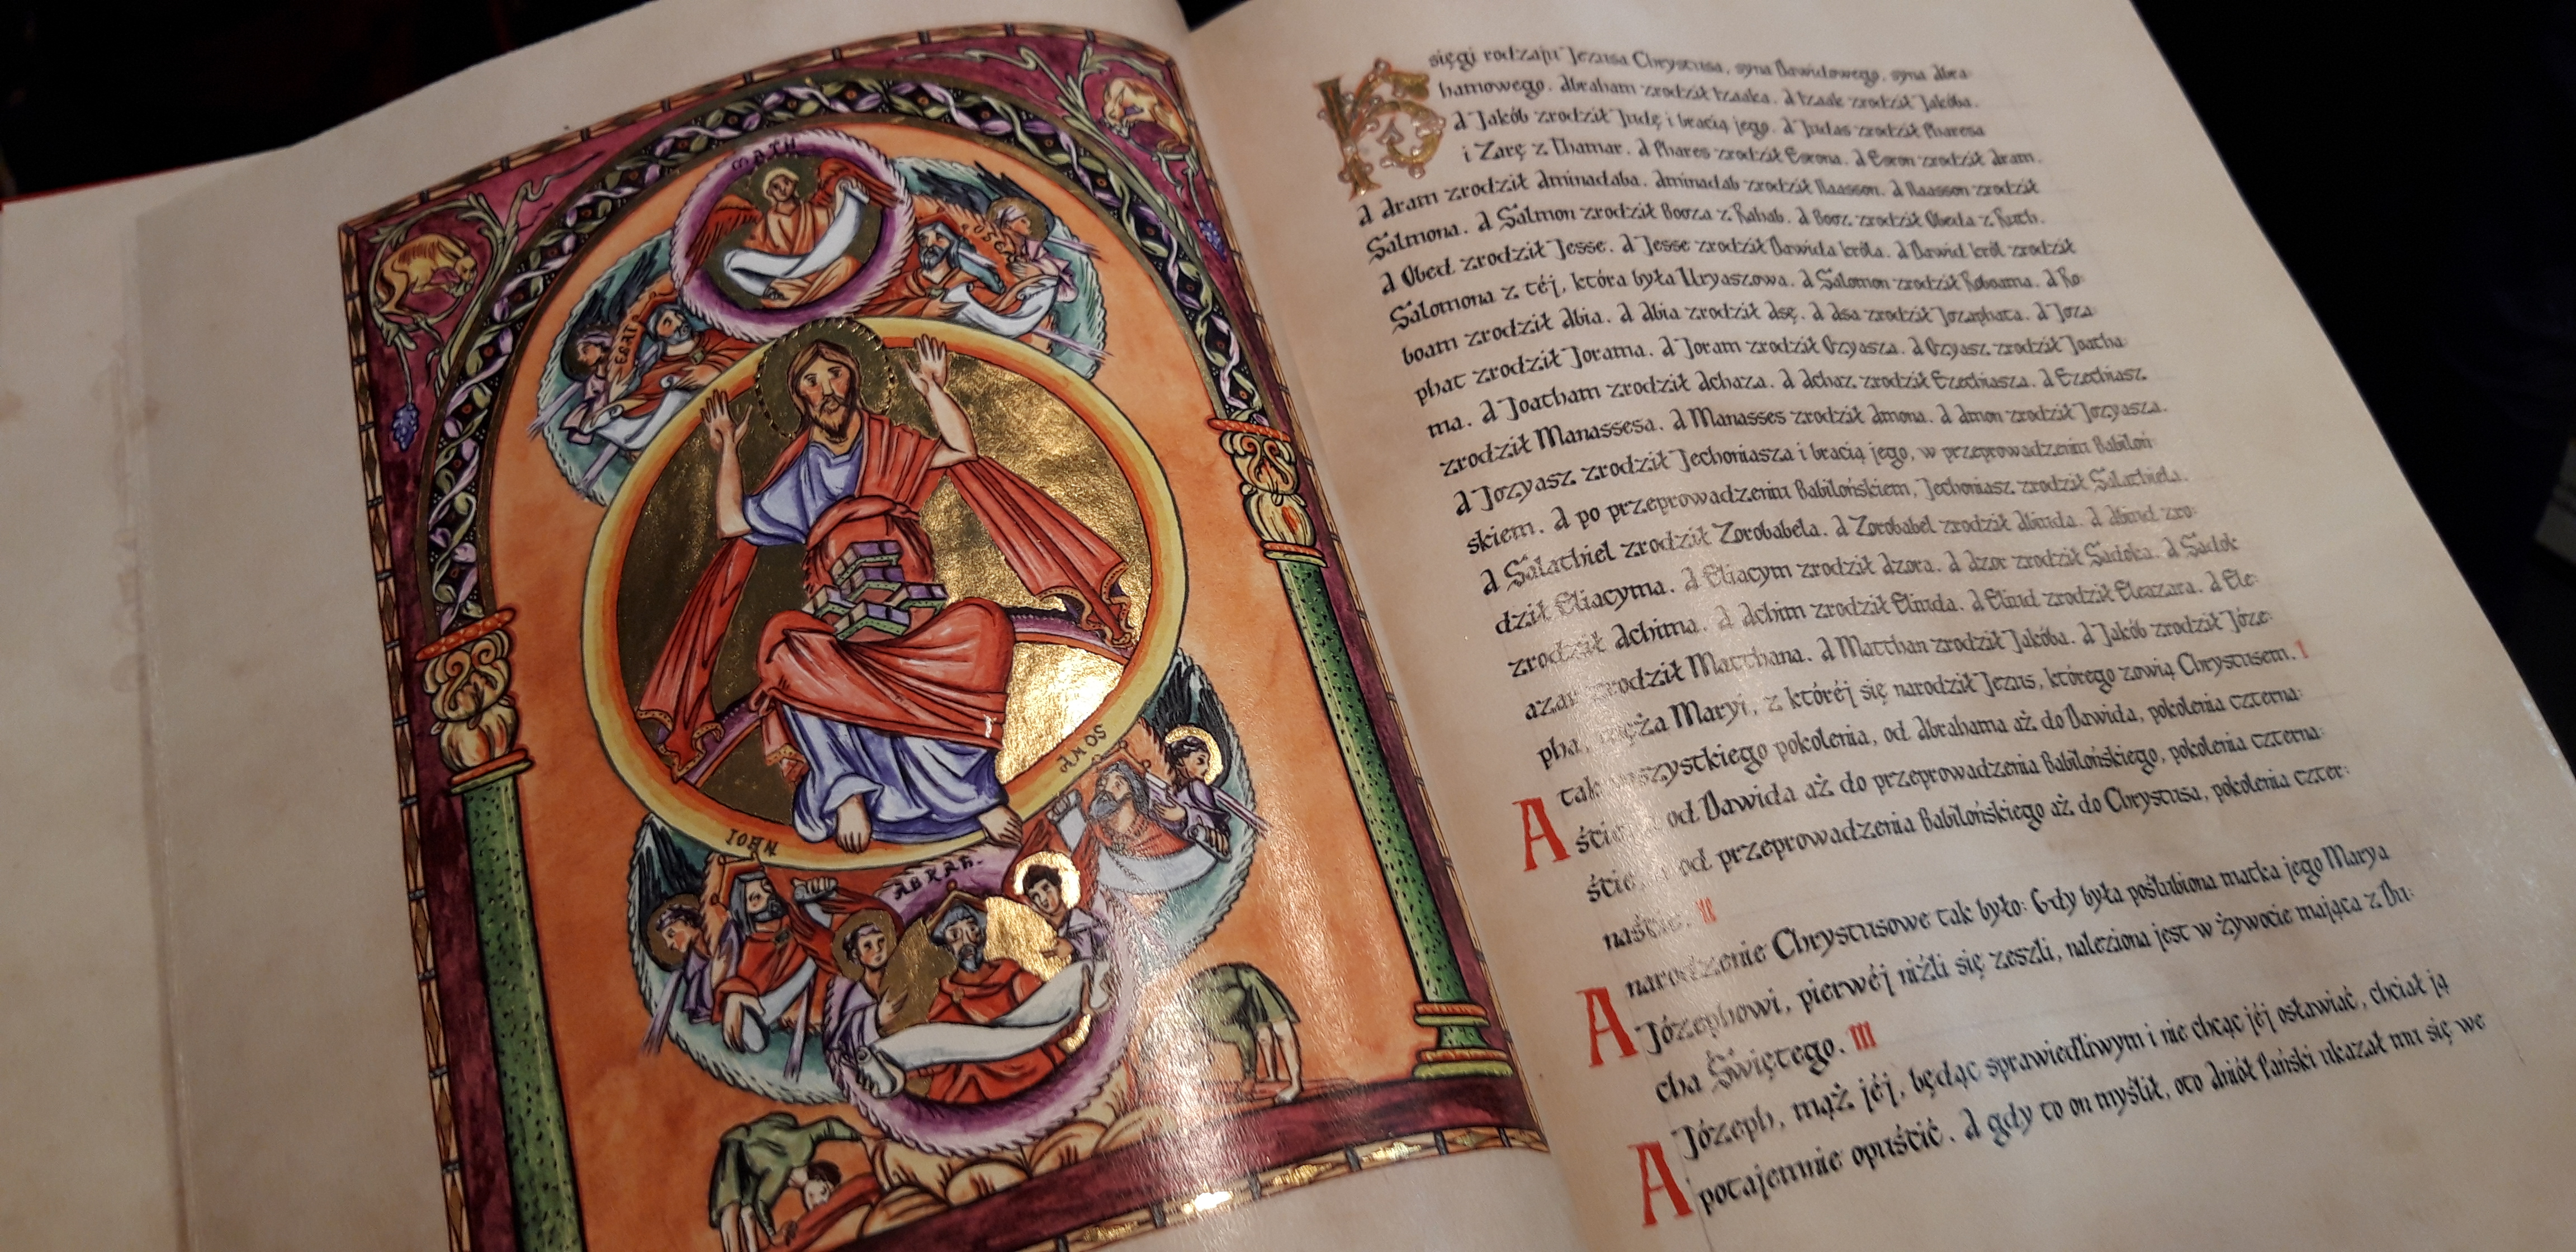 MATH
OSCE
IOHN
AMOS
ABRAH.
Księgi rodzaju Jezusa Chrystusa, syna Dawidowego, syna Abra-
hamowego. Abraham zrodził Izaaka. A Izaak zrodził Jakóba.
A Jakób zrodził Judę i bracią jego. A Judas zrodził Pharesa
i Zarę z Thamar. A Phares zrodził Esrona. A Esron zrodził Aram.
A Aram zrodził Aminadaba. Aminadab zrodził Naasson. A Naasson zrodził
Salmona. A Salmon zrodził Booza z Rahab. A Booz zrodził Obeda z Ruth.
A Obed zrodził Jesse. A Jesse zrodził Dawida króla. A Dawid król zrodził
Salomona z téj, która była Uryaszowa. A Salomon zrodził Roboama. A Ro-
boam zrodził Abia. A Abia zrodził Asę. A Asa zrodził Jozaphata. A Joza-
phat zrodził Jorama. A Joram zrodził Ozyasza. A Ozyasz zrodził Joatha-
ma. A Joatham zrodził Achaza. A Achaz zrodził Ezechiasza. A Ezechiasz
zrodził Manassesa. A Manasses zrodził Amona. A Amon zrodził Jozyasza.
A Jozyasz zrodził Jechoniasza i bracią jego, w przeprowadzeniu Babiloń-
skiem. A po przeprowadzeniu Babilońskiem, Jechoniasz zrodził Salathiela.
A Salathiel zrodził Zorobabela. A Zorobabel zrodził Abiuda. A Abiud zro-
dził Eliacyma. A Eliacym zrodził Azora. A Azor zrodził Sadoka. A Sadok
zrodził Achima. A Achim zrodził Eliuda. A Eliud zrodził Eleazara. A Ele-
azar zrodził Matthana. A Matthan zrodził Jakóba. A Jakób zrodził Józe-
pha, męża Maryi, z któréj się narodził Jezus, którego zowią Chrystusem. I
A tak wszystkiego pokolenia, od Abrahama aż do Dawida, pokolenia czterna-
ście, od Dawida aż do przeprowadzenia Babilońskiego, pokolenia czterna-
ście, od przeprowadzenia Babilońskiego aż do Chrystusa, pokolenia czter-
naście. II
A narodzenie Chrystusowe tak było: Gdy była poślubiona matka jego Marya
Józephowi, pierwéj niźli się zeszli, naleziona jest w żywocie mająca z Du-
cha Świętego. III
A Józeph, mąż jéj, będąc sprawiedliwym i nie chcąc jéj osławiać, chciał ją
potajemnie opuścić. A gdy to on myślił, oto Aniół Pański ukazał mu się we